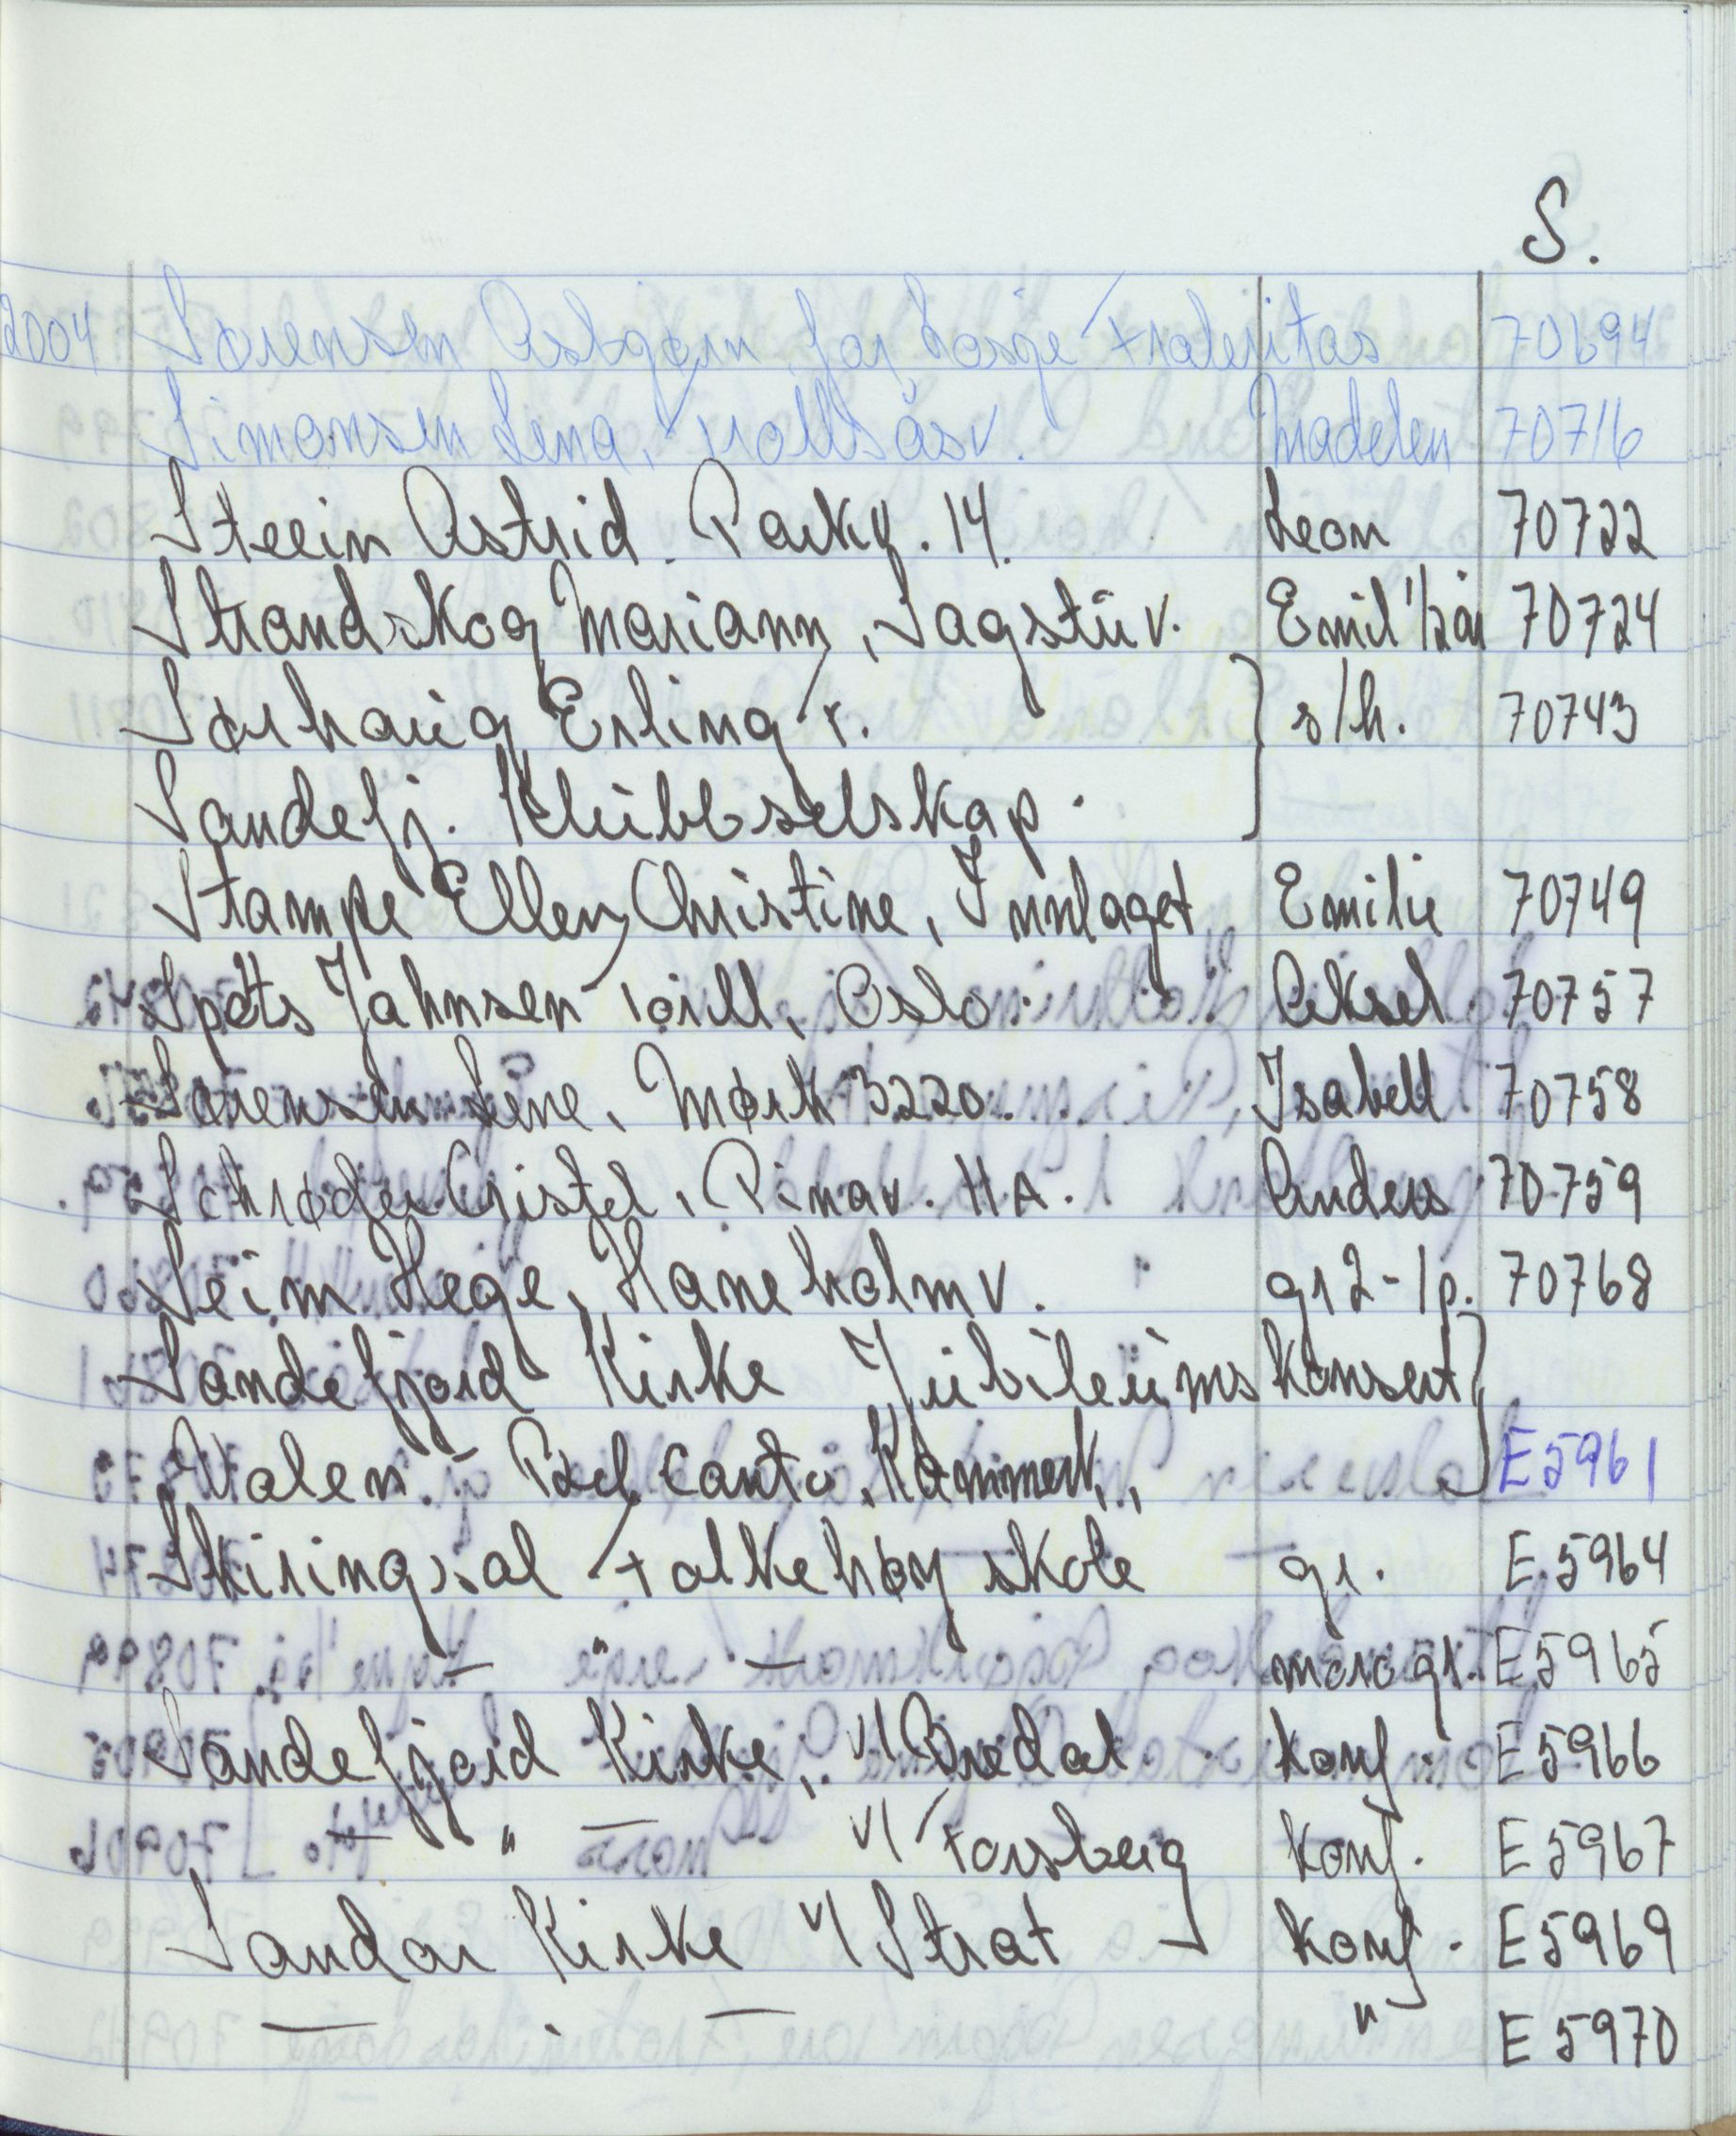 S.
2004 Sørensen Asbjørn for Losje Fraternitas 70694
Simonsen Lena, Trollsåsv. Madelen 70716
Steein Astrid. Parkv. 14. Leon 70722
Strandskog Mariann, Sagstuv. Emil 1/2år 70724
Sørhaug Erling F. } s/h. 70743
Sandefj. Klubbselskap.
Stampe Ellen Christine, Innlaget Emilie 70749
Spets Jahnsen Torill, Oslo. Aksel 70757
Sørensen Line, Mørk 3220. Isabell 70758
Schrøder Cristel, Pinav. 11A. Anders 70759
Seim Hege, Haneholmv. gr 2-1p. 70768
Sandefjord Kirke Jubileums konsert }
Valen. - Bel Canto, Kammerk., E5961
Skiringsal Folkehøyskole gr. E.5964
— " — moro gr. E5965
Sandefjord Kirke, v/Bredal konf. E5966
— " — v/Forsberg konf. E5967
Sandar Kirke v/Strat konf. E5969
— " — " E5970